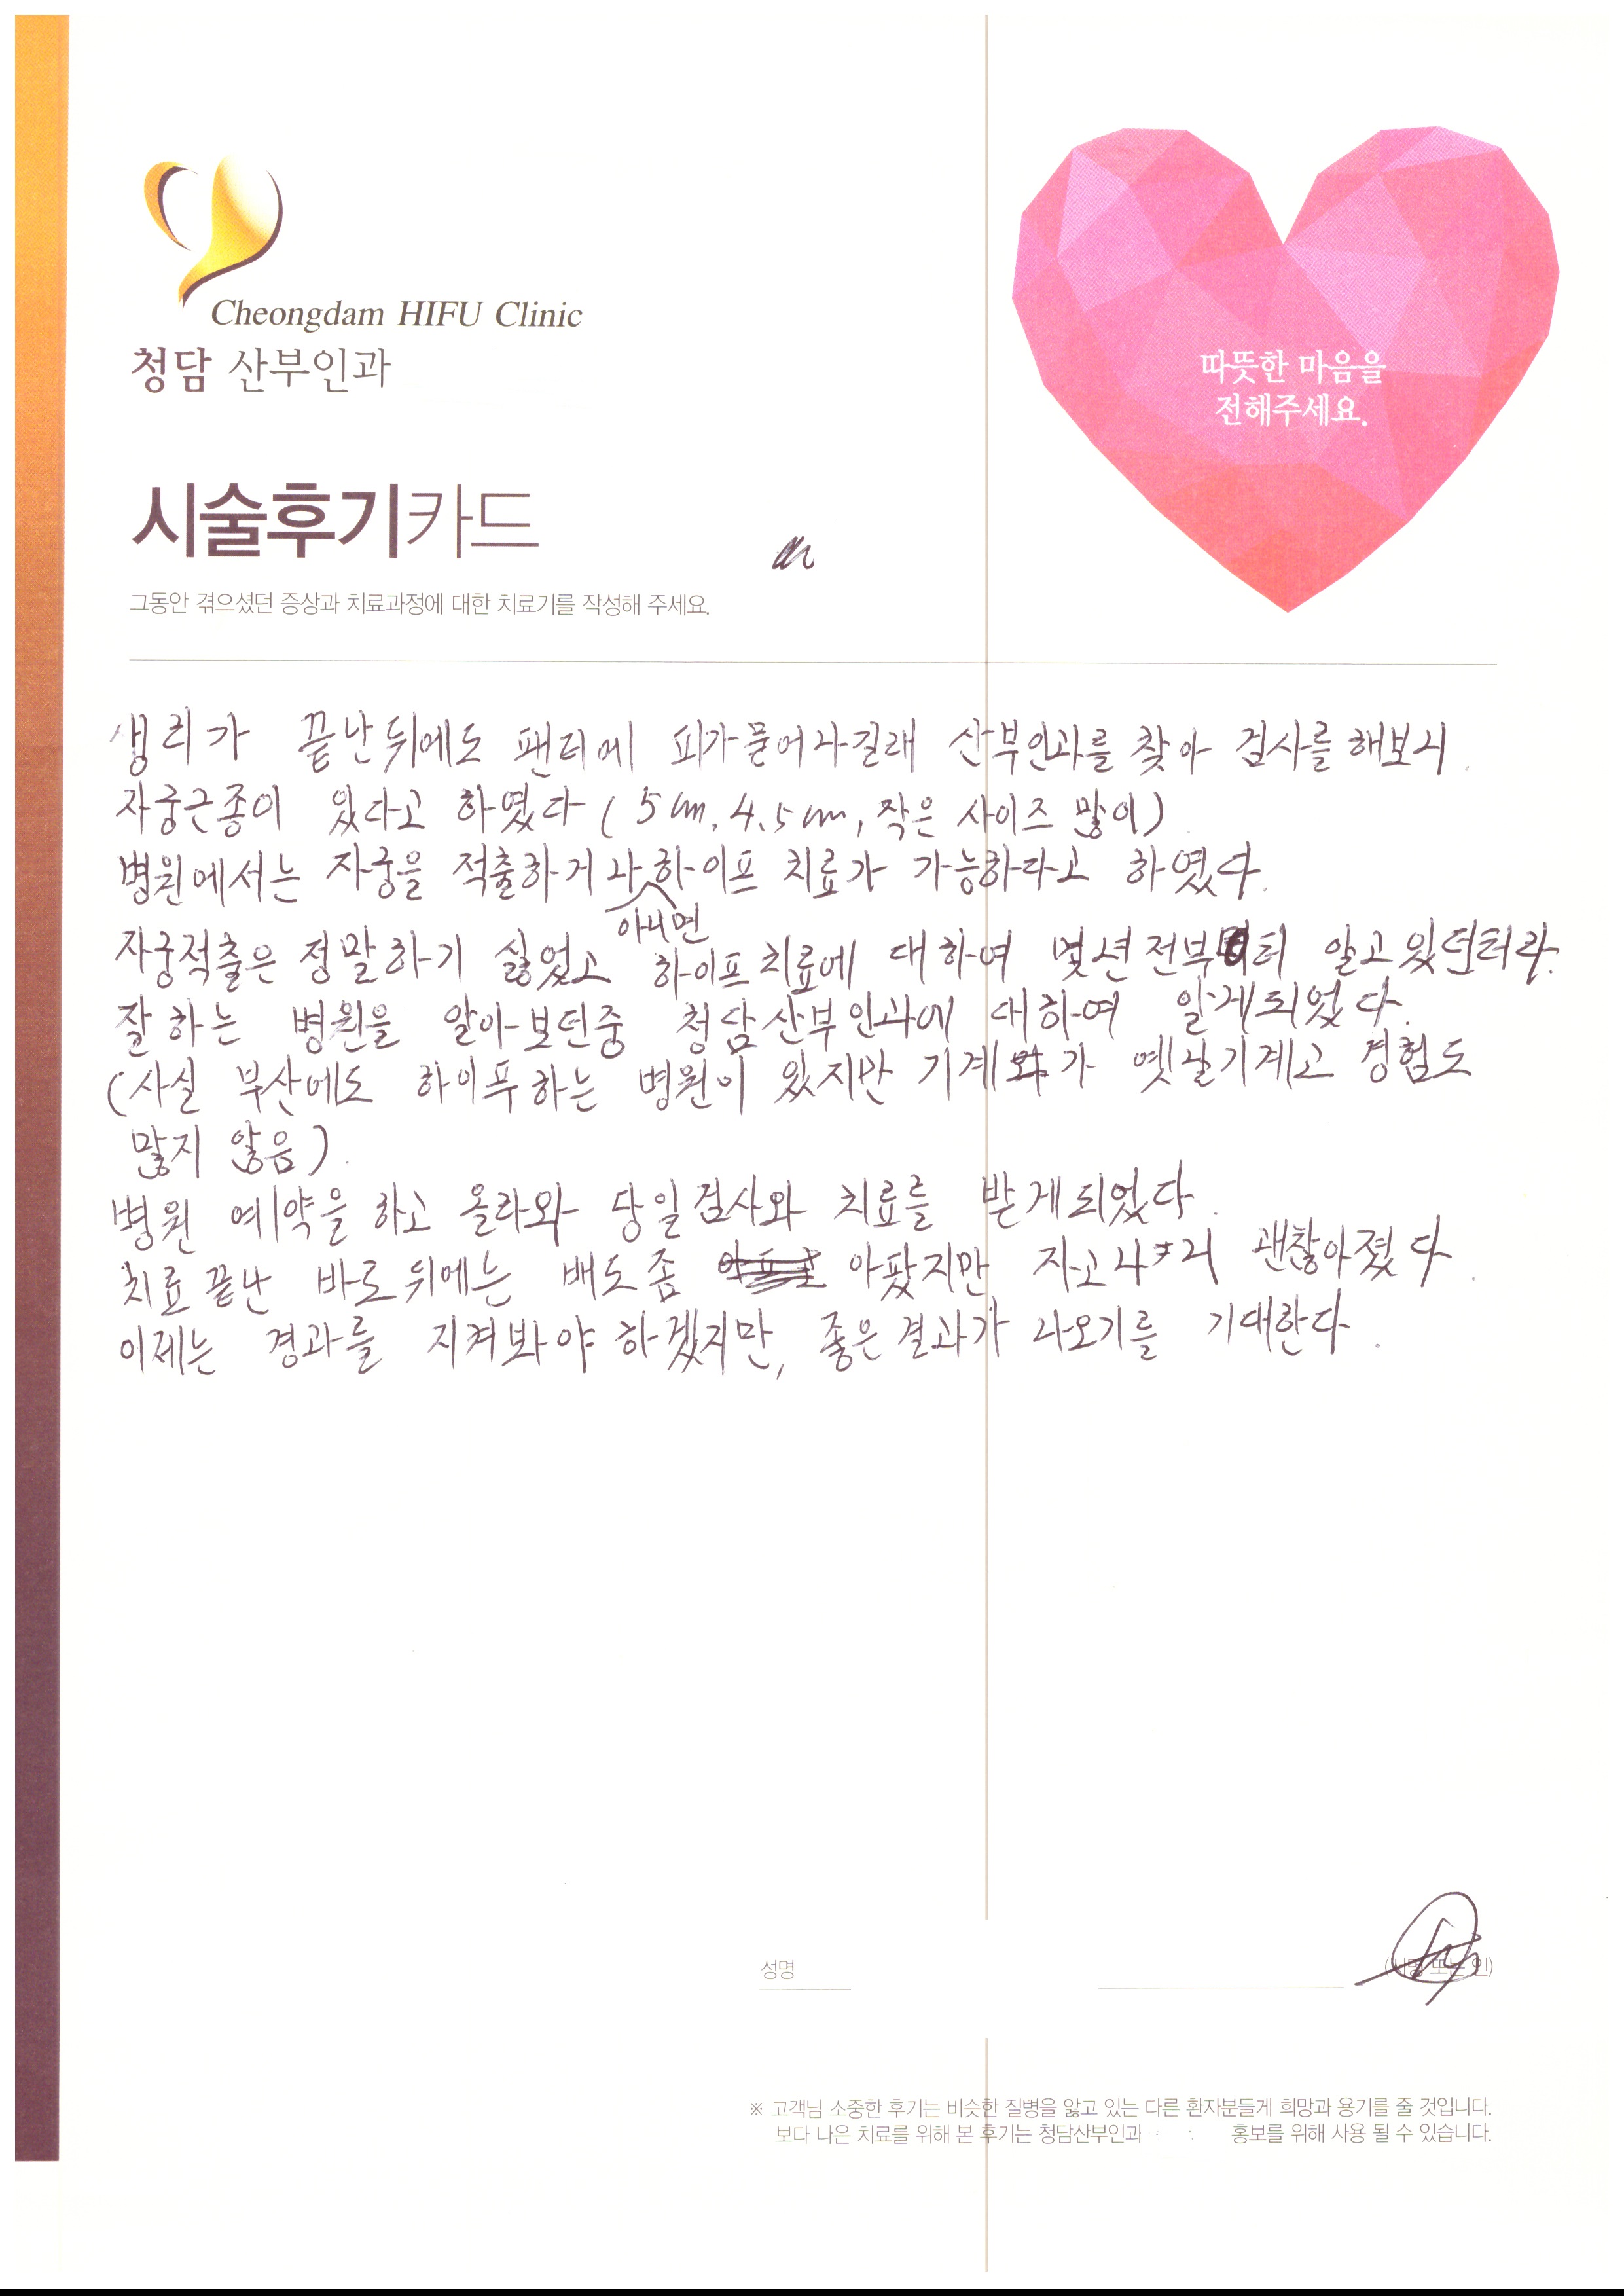 Cheongdam HIFU Clinic
청담 산부인과
따뜻한 마음을
전해주세요.
시술후기카드
그동안 겪으셨던 증상과 치료과정에 대한 치료기를 작성해 주세요.
생리가 끝난뒤에도 팬티에 피가묻어나길래 산부인과를 찾아 검사를 해보니
자궁근종이 있다고 하였다 (5cm, 4.5cm, 작은 사이즈 많이)
병원에서는 자궁을 적출하거나 아니면 하이프 치료가 가능하다고 하였다.
자궁적출은 정말하기 싫었고 하이프치료에 대하여 몇년전부터 알고있던터라
잘하는 병원을 알아보던중 청담산부인과에 대하여 알게되었다.
(사실 부산에도 하이푸하는 병원이 있지만 기계가 옛날기계고 경험도
많지 않음)
병원 예약을 하고 올라와 당일검사와 치료를 받게되었다.
치료끝난 바로뒤에는 배도좀 아팠지만 자고 괜찮아졌다.
이제는 경과를 지켜봐야 하겠지만, 좋은결과가 나오기를 기대한다.
성명
(서명 또는 인)
※ 고객님 소중한 후기는 비슷한 질병을 앓고 있는 다른 환자분들게 희망과 용기를 줄 것입니다.
보다 나은 치료를 위해 본 후기는 청담산부인과 홍보를 위해 사용 될 수 있습니다.